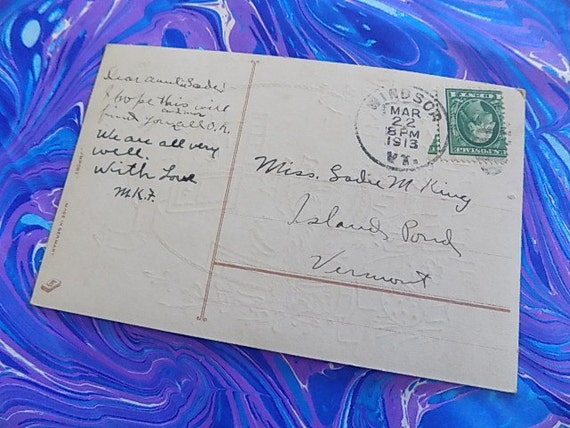 Dear Aunt Sadie:
I hope this will
find you all O.K.
We are all very
well.
With Love
M.K.F.
WINDSOR
MAR
22
8PM
1913
VT.
Miss. Sadie M. King
Islands Pond
Vermont